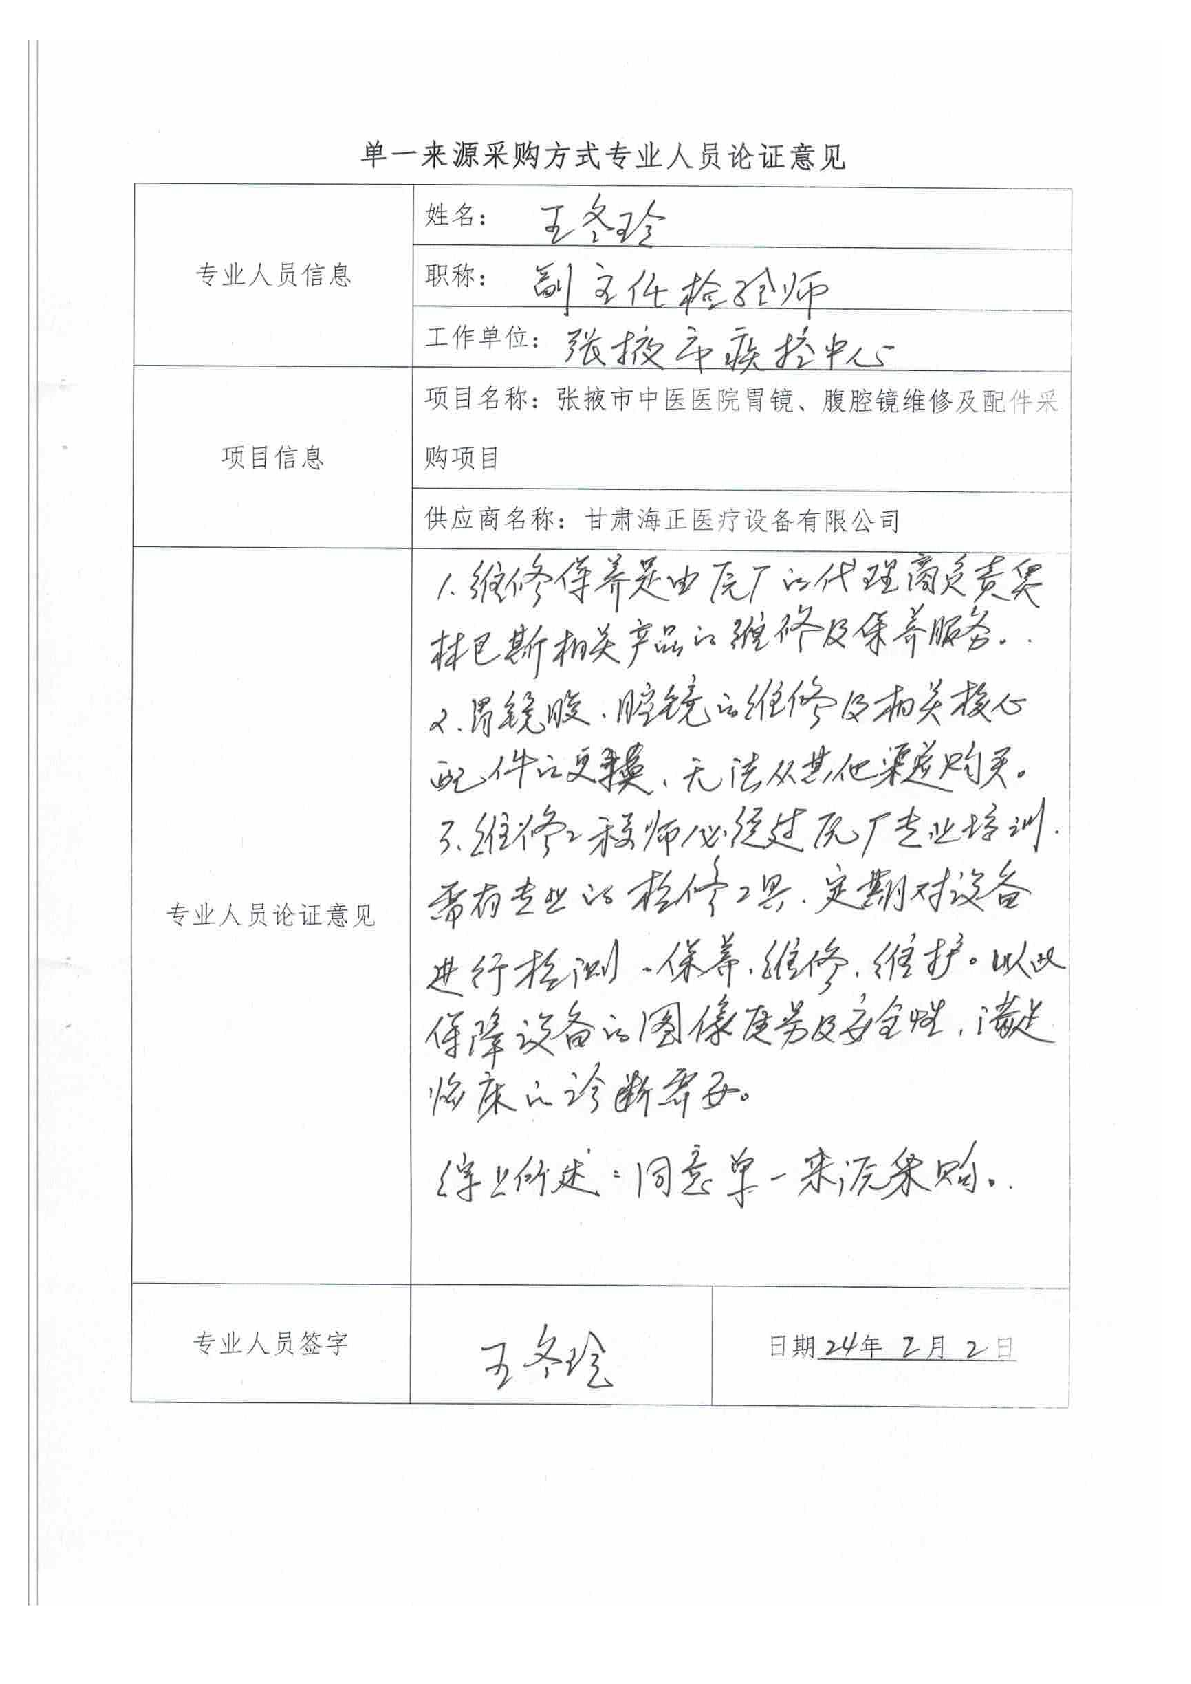 单一来源采购方式专业人员论证意见
专业人员信息
姓名： 王冬玲
职称： 副主任检验师
工作单位：张掖市疾控中心
项目信息
项目名称：张掖市中医医院胃镜、腹腔镜维修及配件采
购项目
供应商名称：甘肃海正医疗设备有限公司
专业人员论证意见
1.维修保养是由原厂的代理商负责奥
林巴斯相关产品的维修及保养服务。
2.胃镜腹、腔镜的维修及相关核心
配件的更换、无法从其他渠道购买。
3.维修工程师必须经过原厂专业培训.
需有专业的检修工具、定期对设备
进行检测、保养、维修、维护。以此
保障设备的图像质量及安全性，满足
临床的诊断需要。
综上所述：同意单一来源采购。
专业人员签字
王冬玲
日期24年2月2日